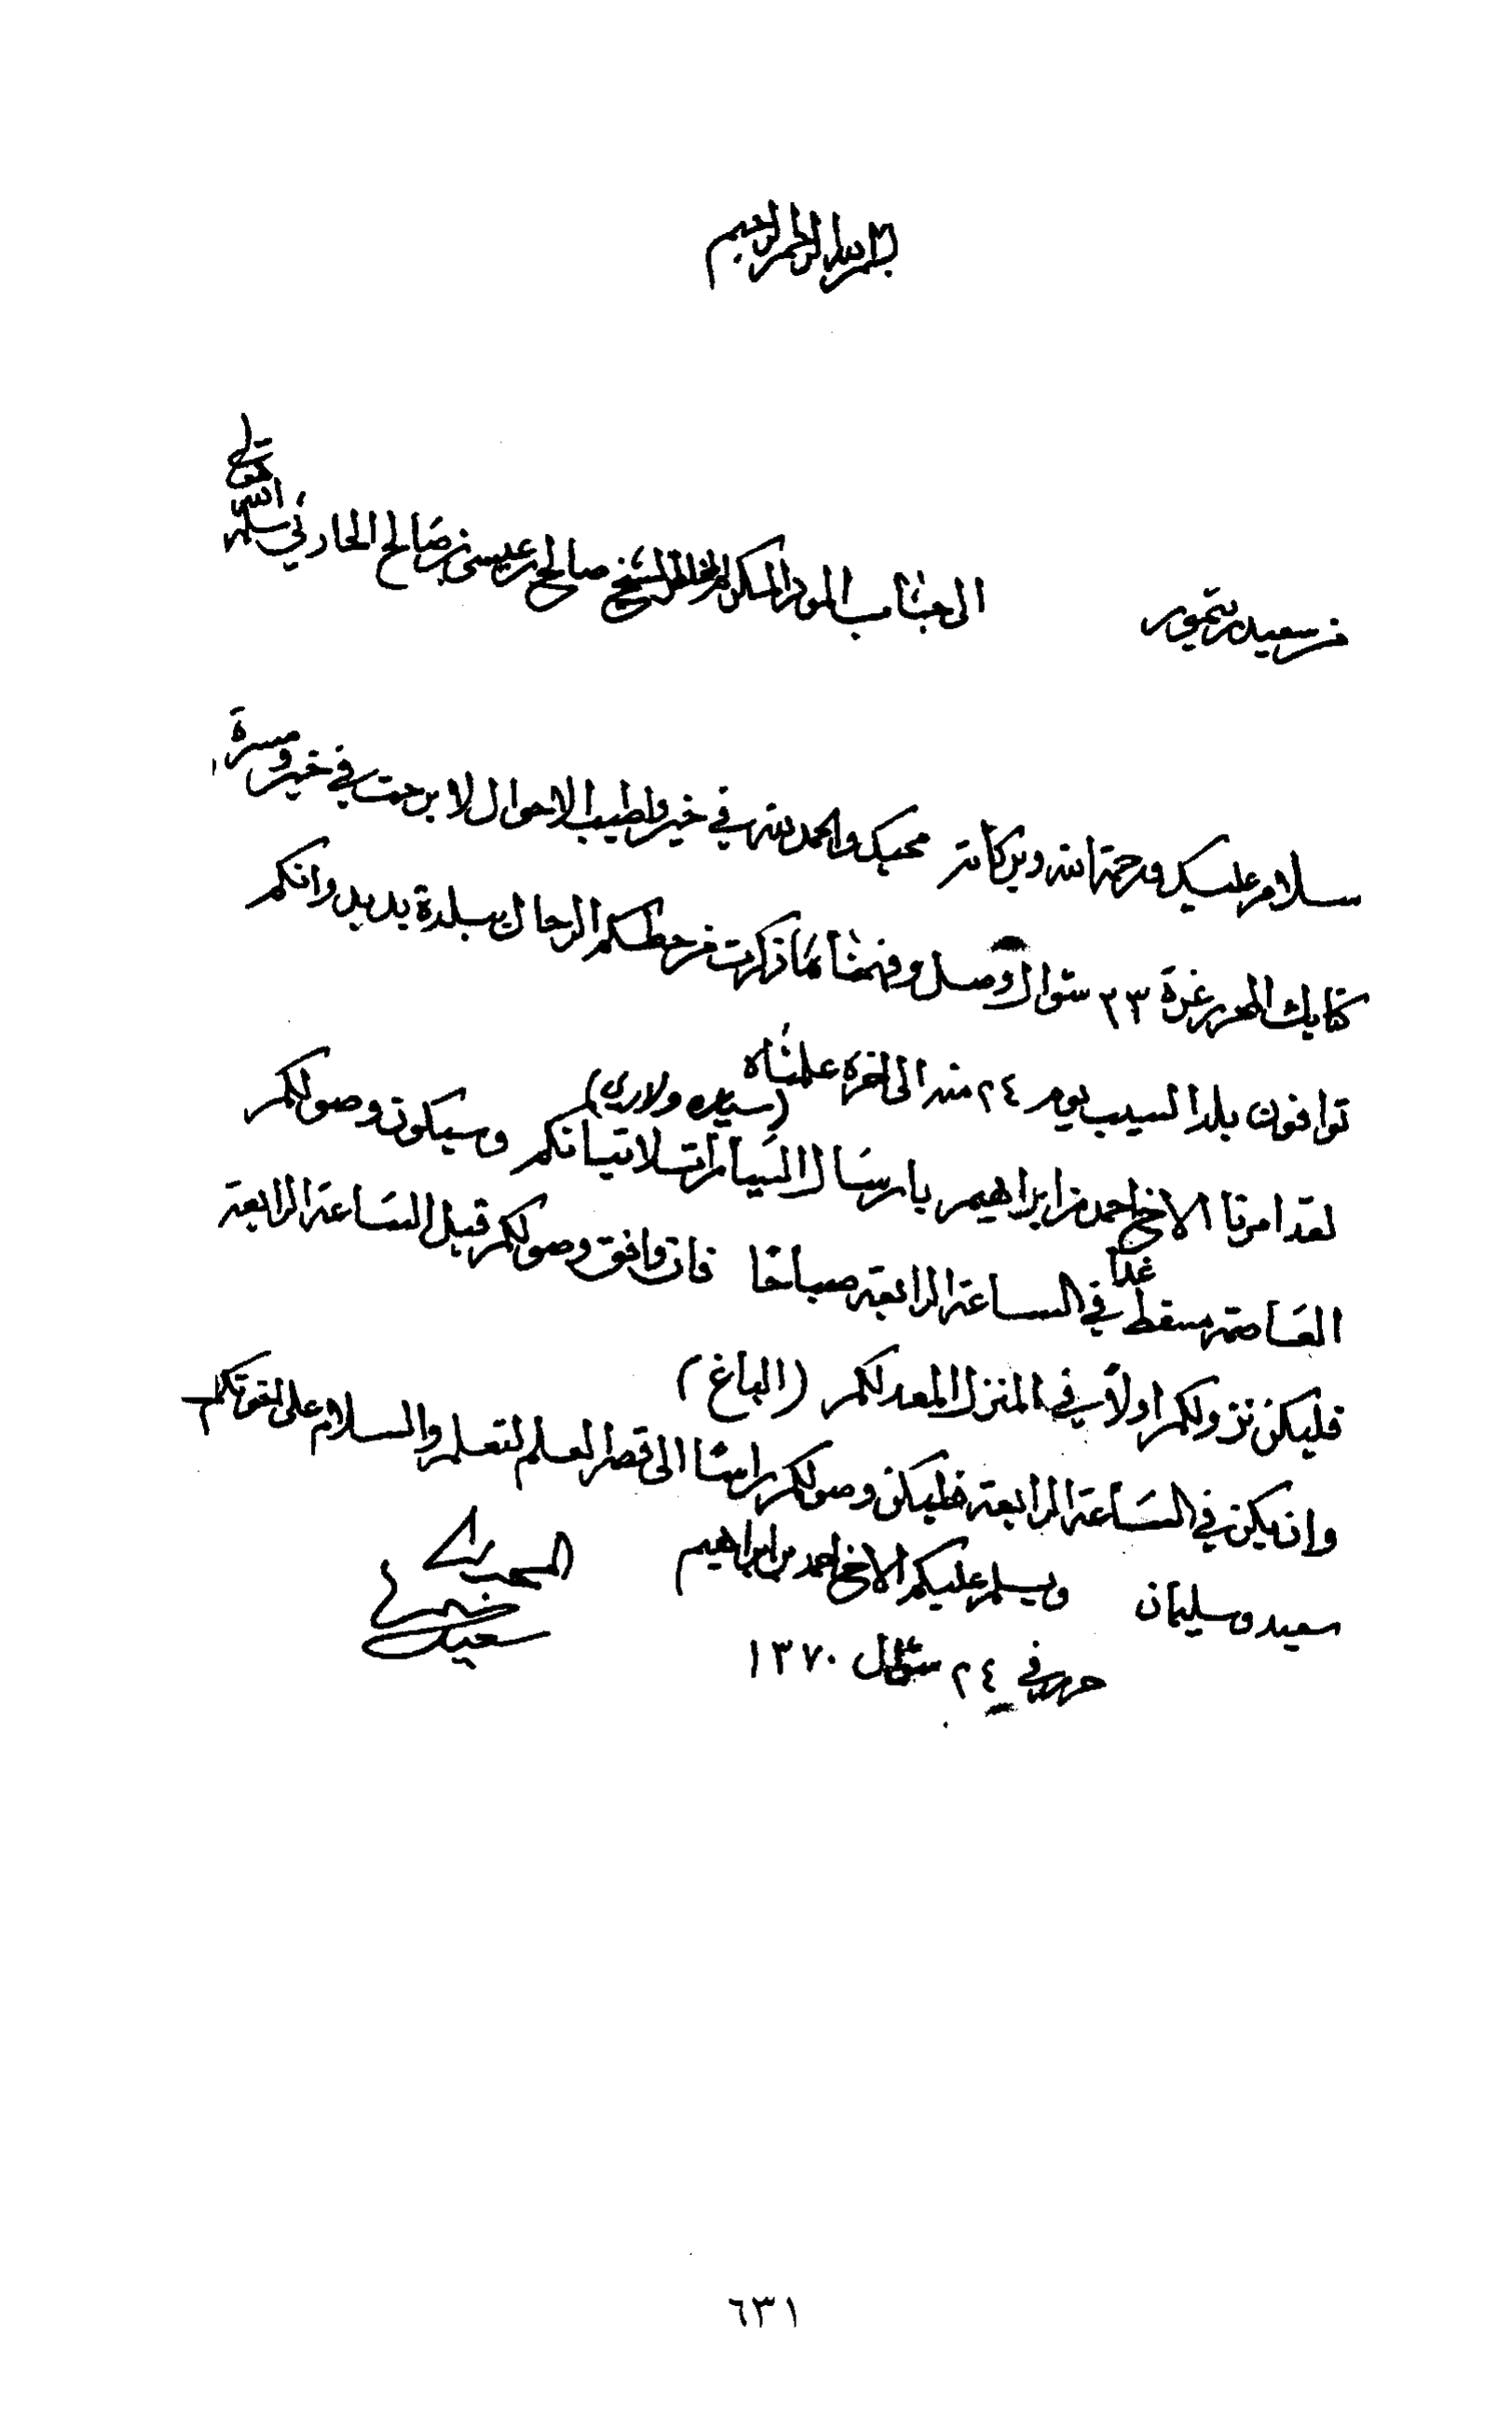 بسم الله الرحمن الرحيم
من سعيد بن تيمور الى جناب المودة المكرم الشيخ صالح بن عيسى بن صالح الحارثي سلمه الله تعالى
سلام عليك ورحمة الله وبركاته محبك والحمد لله في خير واطيب الاحوال لا برحت في خير ومسرة
كتابك المحرر غرة ٢٣ شوال وصل وفهمنا ما ذكرت من حطكم الرحال ببلدة بدبد وانكم
توافون بلد السيب يوم ٢٤ منه الى اخره علمناه
لقد امرنا الاخ احمد بن ابراهيم بارسال السيارات (سياره ولاري) لاتيانكم وسيكون وصولكم
العاصمة مسقط غدا في الساعة الرابعة صباحا فان وافق وصولكم قبل الساعة الرابعة
فليكن نزولكم اولا في المنزل المعد لكم (الباغ)
وان يكن في الساعة الرابعة فليكن وصولكم راسا الى قصر العلم لتعلم والسلام على اخوتكم
سعيد وسليمان ويسلم عليكم الاخ احمد بن ابراهيم
حرر في ٢٤ شوال ١٣٧٠
سعيد
٦٣١